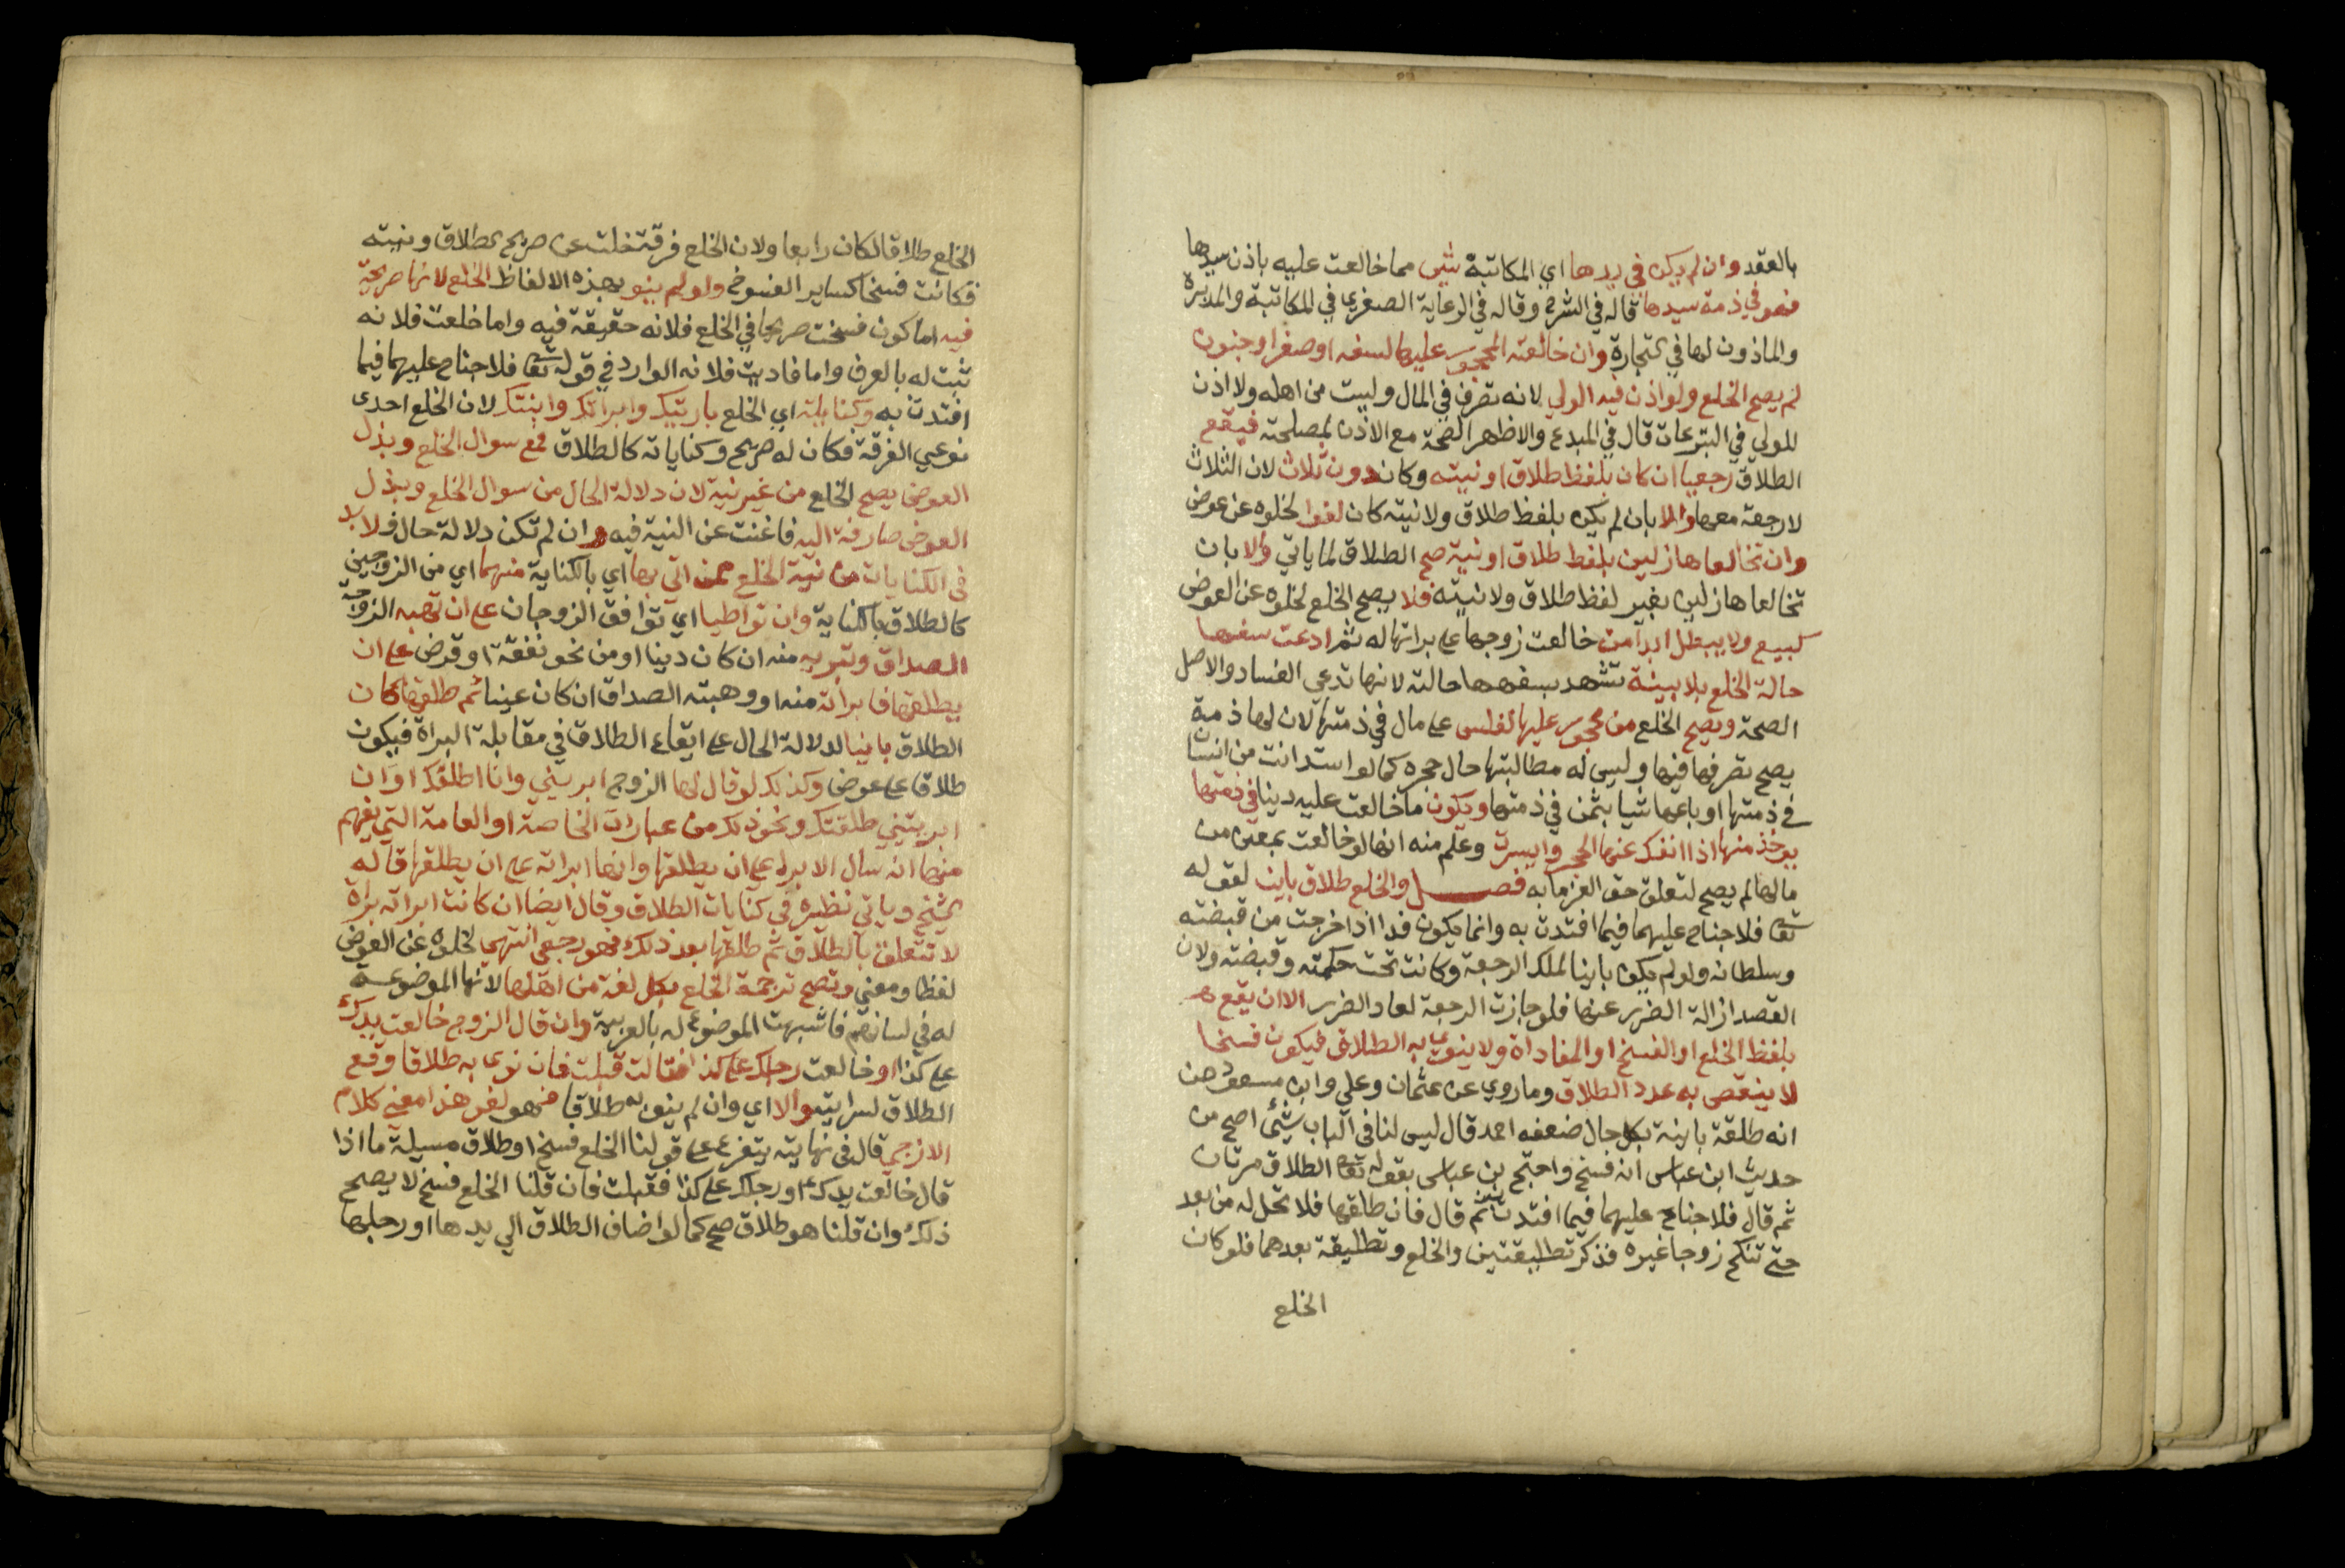 بالعقد وان لم يكن في يدها اي المكاتبة شي مما خالعت عليه باذن سيدها
فهو في ذمة سيدها قاله في الشرح وقاله في الرعاية الصغري في المكاتبة والمدبرة
والماذون لها في التجارة وان خالعته المحجور عليها لسفه او صغر او جنون
لم يصح الخلع ولو اذن فيه الولي لانه تصرف في المال وليست من اهله ولا اذن
للولي في التبرعات قال في المبدع والاظهر الصحة مع الاذن لمصلحته فيقع
الطلاق رجعيا ان كان بلفظ طلاق او نيته وكان دون ثلاث لان الثلاث
لا رجعة معها والا بان لم يكن بلفظ طلاق ولا نيته كان لغوا لخلوه عن عوض
وان تخالعا هازلين بلفظ طلاق او نية صح الطلاق لما ياتي والا بان
تخالعا هازلين بغير لفظ طلاق ولا نيته فلا يصح الخلع لخلوه عن العوض
كبيع ولا يبطل ابرا من خالعت زوجها على براتها له ثم ادعت سفهها
حالة الخلع بلا بينة تشهد بسفهها حالته لانها تدعي الفساد والاصل
الصحة ويصح الخلع من محجور عليها لفلس على مال في ذمتها لان لها ذمة
يصح تصرفها فيها وليس له مطالبتها حال حجره كما لو استدانت من انسان
في ذمتها او باعها شيا بثمن في ذمتها ويكون ما خالعت عليه دينا في ذمتها
يوخذ منها اذا انفك عنها الحجر وايسرت وعلم منه انها لو خالعت بمعين من
مالها لم يصح لتعلق حق الغرما به فصل والخلع طلاق باين لقوله
تعا فلا جناح عليهما فيما افتدت به وانما يكون فدا اذا خرجت من قبضته
وسلطانه ولو لم يكن باينا لملك الرجعة وكانت تحت حكمه وقبضته ولان
القصد ازالة الضرر عنها فلو جازت الرجعة لعاد الضرر الا ان يقع
بلفظ الخلع او الفسخ او المفاداة ولا ينوي به الطلاق فيكون فسخا
لا ينقص به عدد الطلاق وما روي عن عثمان وعلي وابن مسعود من
انه طلقة باينة بكل حال ضعفه احمد قال ليس لنا في الباب شئ اصح من
حديث ابن عباس انه فسخ واحتج بن عباس بقوله تعا الطلاق مرتان
ثم قال فلا جناح عليهما فيما افتدت به ثم قال فان طلقها فلا تحل له من بعد
حتى تنكح زوجا غيره فذكر تطليقتين والخلع وتطليقة بعدهما فلو كان
الخلع
الخلع طلاقا لكان رابعا ولان الخلع فرقة خلت عن صريح الطلاق ونيته
فكانت فسخا كساير الفسوخ ولو لم ينو بهذه الالفاظ الخلع لانها صريحة
فيه اما كون فسخت صريحا في الخلع فلانه حقيقة فيه واما خلعت فلانه
ثبت له بالعرف واما فاديت فلانه الوارد في قوله تعا فلا جناح عليهما فيما
افتدت به وكنايته اي الخلع باريتك وابراتك وابنتك لان الخلع احدى
نوعي الفرقة فكان له صريح وكنايات كالطلاق فمع سوال الخلع وبذل
العوض يصح الخلع من غير نية لان دلالة الحال من سوال الخلع وبذل
العوض صارفة اليه فاغنت عن النية فيه وان لم تكن دلالة حال فلا بد
في الكنايات من نية الخلع ممن اتي بها اي بالكناية منهما اي من الزوجين
كالطلاق بالكناية وان تواطيا اي توافق الزوجان على ان تهبه الزوجة
الصداق وتبريه منه ان كان دينا او من نحو نفقة او قرض على ان
يطلقها فابراته منه او وهبته الصداق ان كان عينا ثم طلقها كان
الطلاق باينا لدلالة الحال على ايقاع الطلاق في مقابلة البراة فيكون
طلاقا على عوض وكذلك لو قال لها الزوج ابريني وانا اطلقك او ان
ابريتيني طلقتك ونحو ذلك من عبارات الخاصة او العامة التي يفهم
منها انه سال الابرا على ان يطلقها وانها ابراته على ان يطلقها قاله
الشيخ وياتي نظيره في كنايات الطلاق وقال ايضا ان كانت ابراته براة
لا تتعلق بالطلاق ثم طلقها بعد ذلك فهو رجعي انتهى لخلوه عن العوض
لفظا ومعني وتصح ترجمة الخلع بكل لغة من اهلها لانها الموضوعة
له في لسانهم فاشبهت الموضوع له بالعربية وان قال الزوج خالعت يدك
على كذا او خالعت رجلك على كذا فقالت قبلت فان نوى به طلاقا وقع
الطلاق لسرايته والا اي وان لم ينو به طلاقا فهو لغو هذا معني كلام
الازجي قال في نهايته يتفرع على قولنا الخلع فسخ او طلاق مسيلة ما اذا
قال خالعت يدك او رجلك على كذا فقبلت فان قلنا الخلع فسخ لا يصح
ذلك وان قلنا هو طلاق صح كما لو اضاف الطلاق الي يدها او رجلها